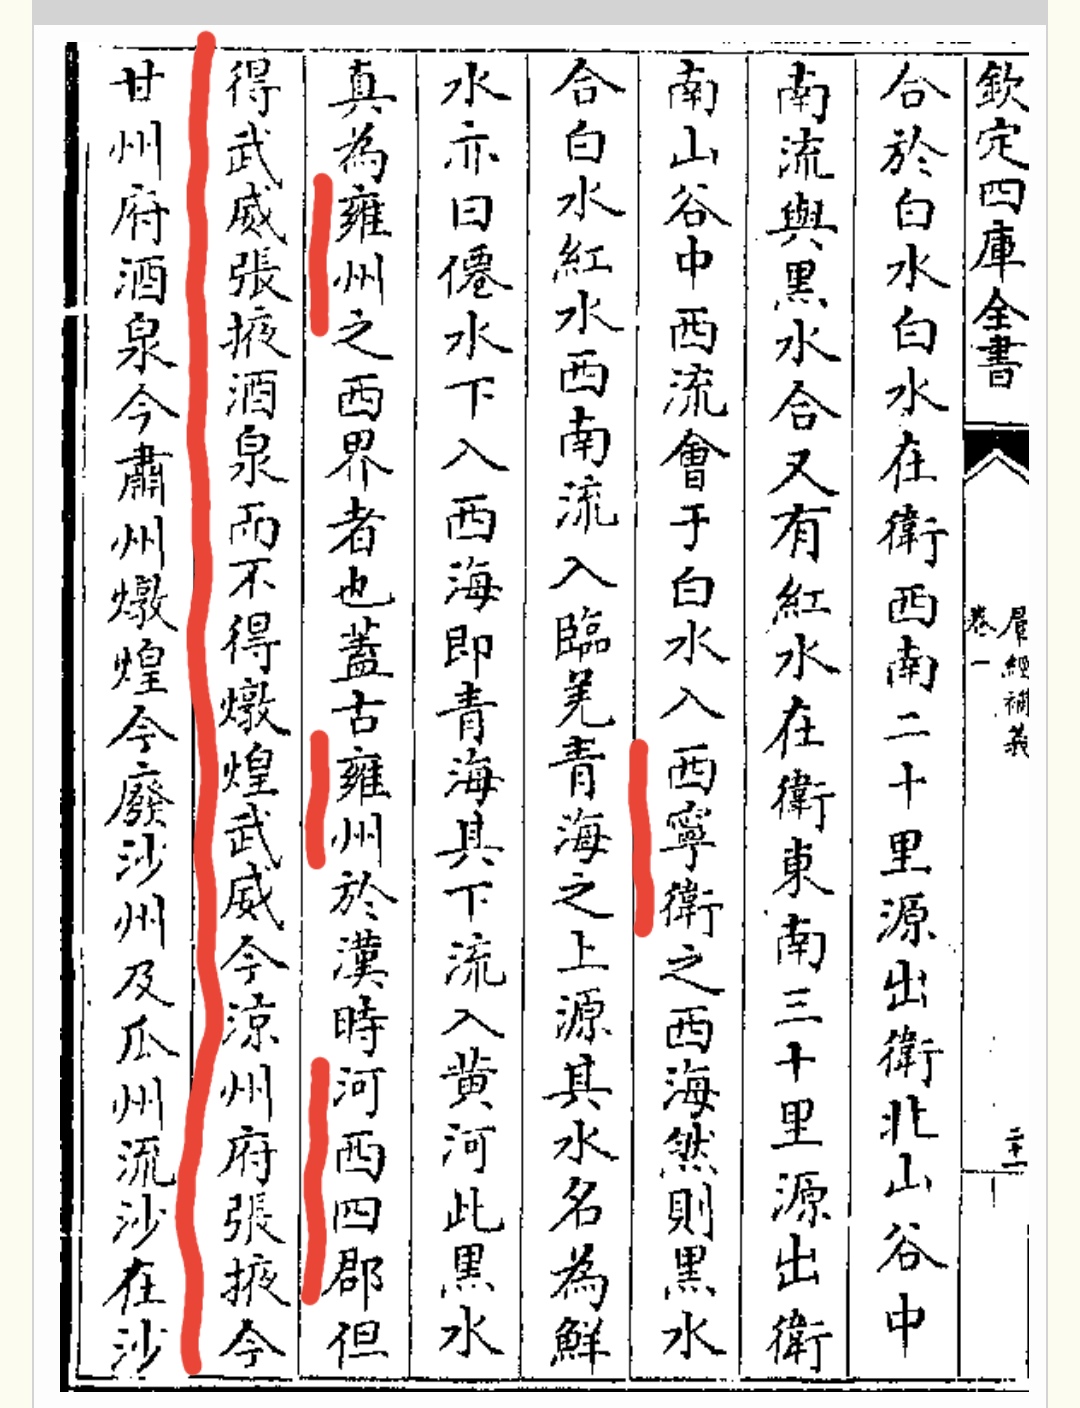 欽定四庫全書
羣經補義
卷一
二十一
合於白水白水在衛西南二十里源出衛北山谷中
南流與黒水合又有紅水在衛東南三十里源出衛
南山谷中西流會于白水入西寧衛之西海然則黒水
合白水紅水西南流入臨羌青海之上源其水名為鮮
水亦曰僊水下入西海即青海其下流入黄河此黒水
真為雍州之西界者也蓋古雍州於漢時河西四郡但
得武威張掖酒泉而不得燉煌武威今涼州府張掖今
甘州府酒泉今肅州燉煌今廢沙州及瓜州流沙在沙